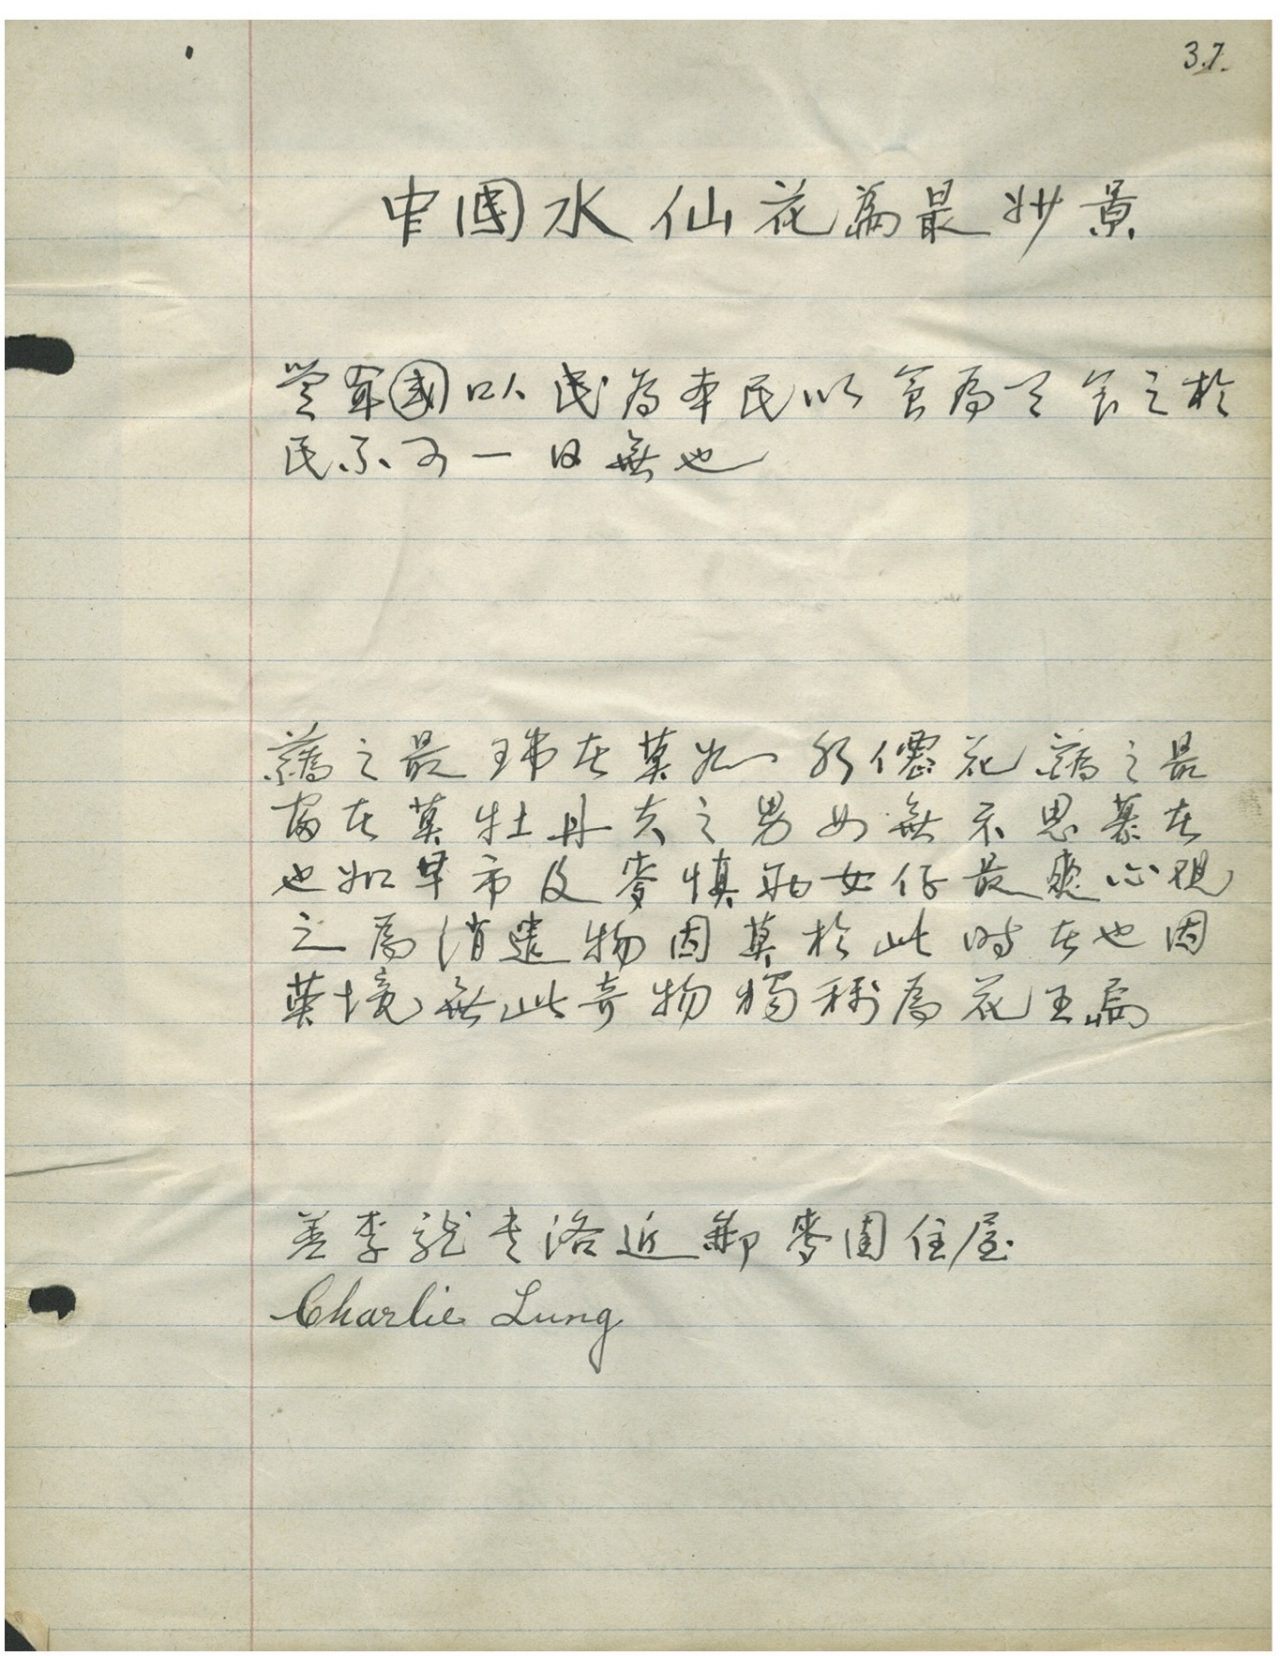 37.
中國水仙花為最妙景
國以民為本民以食為天食之於
民不可一日無也
之最 在莫如 水僊花 之最
富在莫牡丹 之男女無不思慕在
也如 市及麥慎 女仔最爽心視
之為消遣物因莫於此時在也因
英境無此奇物獨稱為花王焉
李龍 洛近 麥園住屋
Charlie Lung